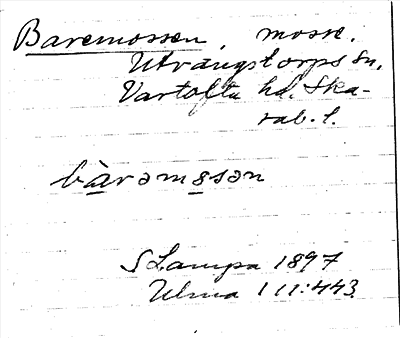 Baremossen, mosse.
Utvängstorps sn.
Vartofta hd. Ska-
rab. l.
bàrəmosən
S Lampa 1897
Ulma 111:443